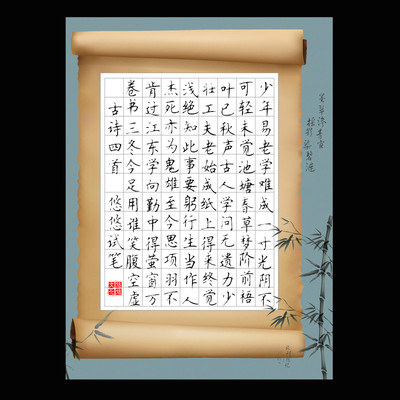 少年易老学难成一寸光阴不
可轻未觉池塘春草梦阶前梧
叶已秋声古人学问无遗力少
壮工夫老始成纸上得来终觉
浅绝知此事要躬行生当作人
杰死亦为鬼雄至今思项羽不
肯过江东学向勤中得萤窗万
卷书三冬今足用谁笑腹空虚
古诗四首 悠悠试笔